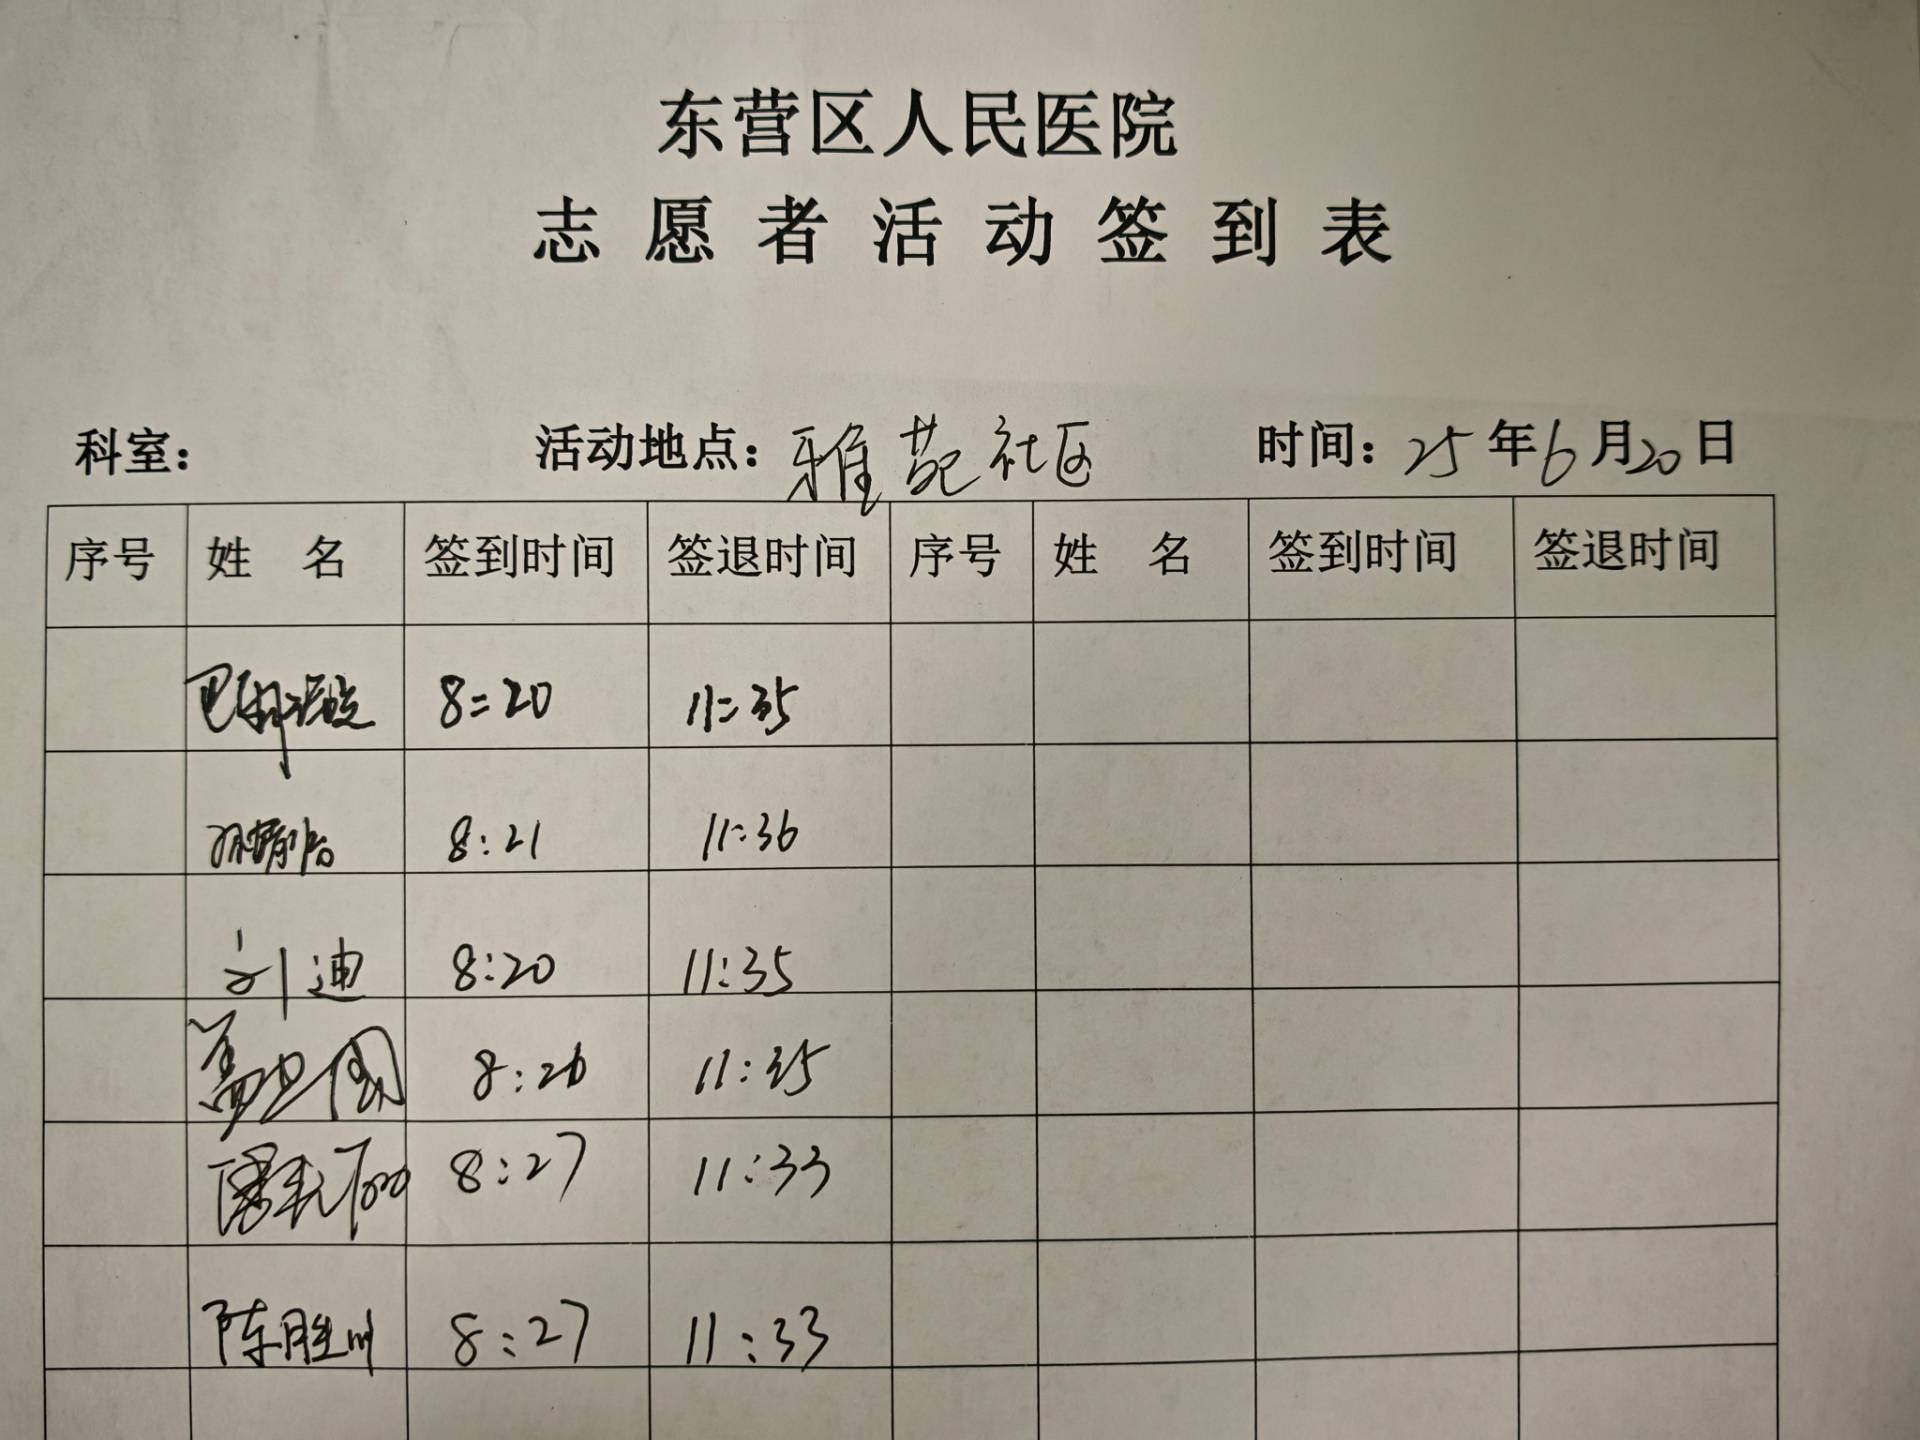 东营区人民医院
志愿者活动签到表
科室： 活动地点：雅苑社区 时间：25年6月20日
序号 姓 名 签到时间 签退时间 序号 姓 名 签到时间 签退时间
8:20 11:35
8:21 11:36
刘迪 8:20 11:35
8:26 11:35
8:27 11:33
陈胜川 8:27 11:33